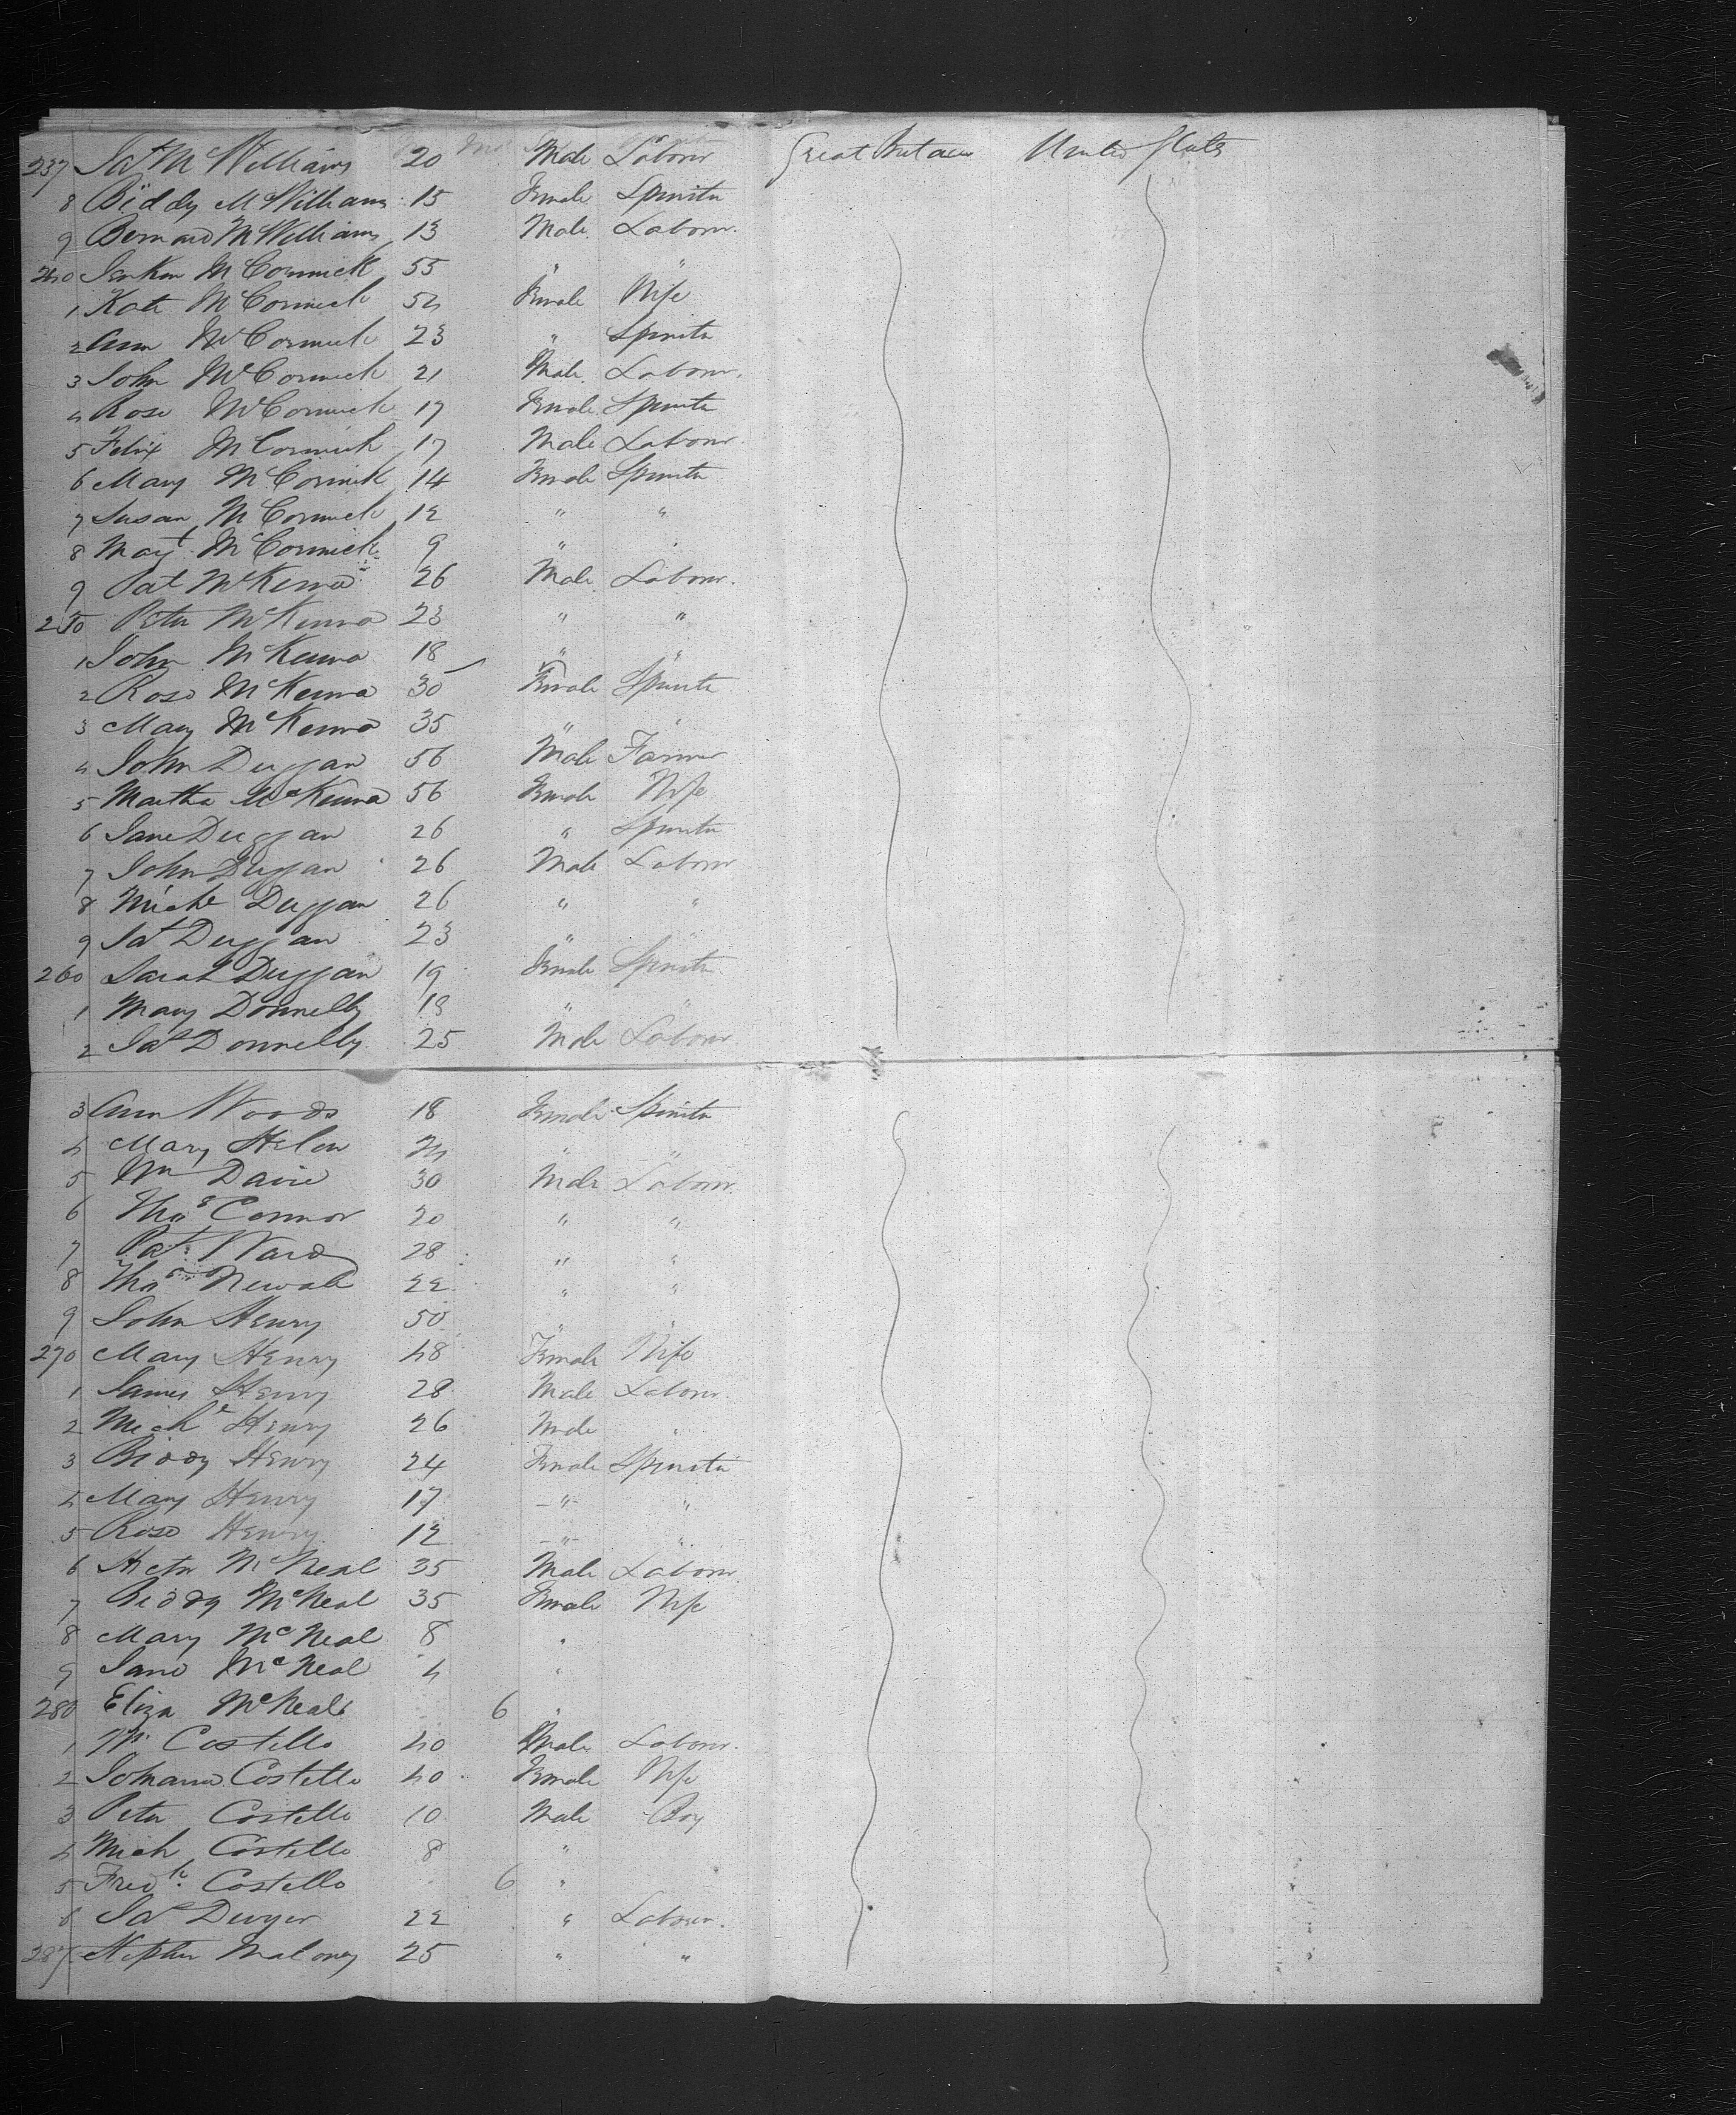 237 Jas McWilliams 20 Male Labour Great Britain United States
8 Biddy McWilliams 15 Female Spinster
9 Bernard McWilliams 13 Male Labour.
240 McCormick 55 " "
1 Kate McCormick 54 Female Wife
2 Ann McCormick 23 " Spinster
3 John McCormick 21 Male Labour.
4 Rose McCormick 19 Female Spinster
5 Felix McCormick 17 Male Labour.
6 Mary McCormick 14 Female Spinster
7 Susan McCormick 12 " "
8 Magt McCormick 9 " "
9 Pat McKenna 26 Male Labour.
250 Peter McKenna 23 " "
1 John McKenna 18 " "
2 Rose McKenna 30 Female Spinster
3 Mary McKenna 35 " "
4 John Duggan 56 Male Farmer
5 Martha McKenna 56 Female Wife
6 Jane Duggan 26 " Spinster
7 John Duggan 26 Male Labour
8 Michl Duggan 26 " "
9 Jas Duggan 23 " "
260 Sarah Duggan 19 Female Spinster
1 Mary Donnelly 18 " "
2 Jas Donnelly 25 Male Labour.
3 Ann Woods 18 Female Spinster
4 Mary " "
5 Wm 30 Male Labour.
6 Thos Connor 20 " "
7 Pat. Ward 28 " "
8 Thos 22 " "
9 John Henry 50 " "
270 Mary Henry 48 Female Wife
1 James Henry 28 Male Labour.
2 Michl Henry 26 Male "
3 Biddy Henry 24 Female Spinster
4 Mary Henry 17 " "
5 Rose Henry 12 " "
6 McNeal 35 Male Labour.
7 Biddy McNeal 35 Female Wife
8 Mary McNeal 8 "
9 Jane McNeal 4 "
280 Eliza McNeal 6 "
1 Costello 40 Male Labour.
2 Johanna Costello 40 Female Wife
3 Peter Costello 10 Male Boy
4 Mich Costello 8 "
5 Fredk. Costello 6 "
6 Jas Dwyer 22 " Labour.
287 Stephen Maloney 25 " "